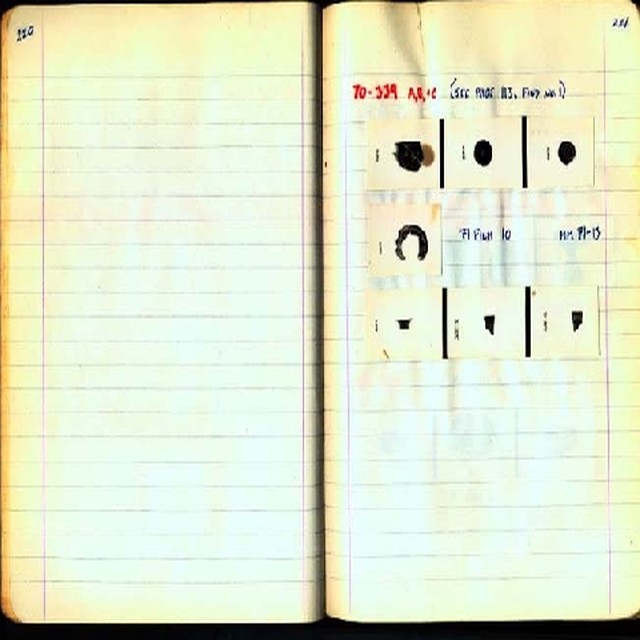 220
221
70-339 A,B,+C (SEE PAGE 113, FIND NO. 1)
71 FILM 10